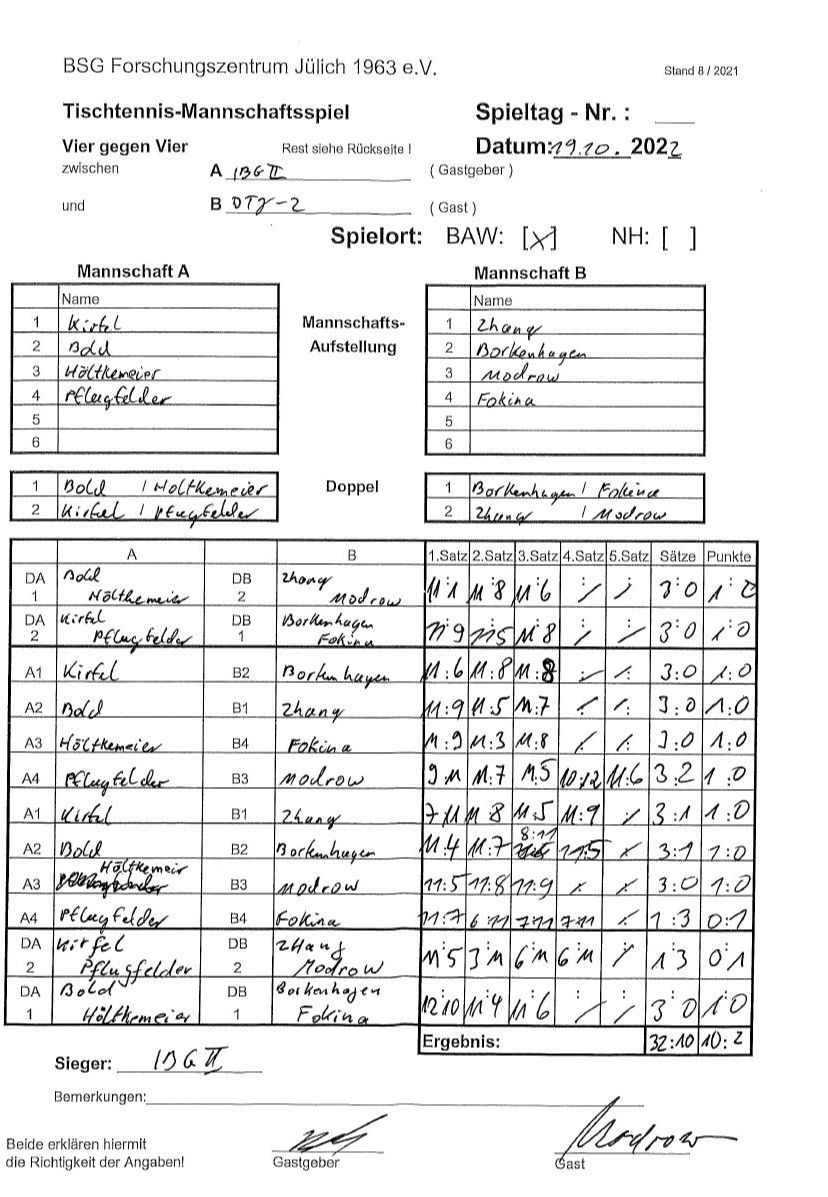 BSG Forschungszentrum Jülich 1963 e.V.
Stand 8 / 2021
Tischtennis-Mannschaftsspiel
Spieltag - Nr. :
Vier gegen Vier
Rest siehe Rückseite !
Datum: 19.10. 2022
zwischen
A IBG II
( Gastgeber )
und
B
( Gast )
Spielort: BAW: [X] NH: [ ]
Mannschaft A
Mannschaft B
Name
Name
1 Kirfel
Mannschafts-
1 Zhang
2 Bold
Aufstellung
2 Borkenhagen
3 Höltkemeier
3 Modrow
4 Pflugfelder
4 Fokina
5
5
6
6
1 Bold / Höltkemeier
Doppel
1 Borkenhagen / Fokina
2 Kirfel / Pflugfelder
2 Zhang / Modrow
A B 1.Satz 2.Satz 3.Satz 4.Satz 5.Satz Sätze Punkte
DA 1 Bold Höltkemeier DB 2 Zhang Modrow 11:1 11:8 11:6 ⁒ ⁒ 3:0 1:0
DA 2 Kirfel Pflugfelder DB 1 Borkenhagen Fokina 11:9 11:5 11:8 ⁒ ⁒ 3:0 1:0
A1 Kirfel B2 Borkenhagen 11:6 11:8 11:8 ⁒ ⁒ 3:0 1:0
A2 Bold B1 Zhang 11:9 11:5 11:7 ⁒ ⁒ 3:0 1:0
A3 Höltkemeier B4 Fokina 11:9 11:3 11:8 ⁒ ⁒ 3:0 1:0
A4 Pflugfelder B3 Modrow 9:11 11:7 11:5 10:12 11:6 3:2 1:0
A1 Kirfel B1 Zhang 7:11 11:8 11:5 11:9 ⁒ 3:1 1:0
A2 Bold B2 Borkenhagen 11:4 11:7 8:11 11:5 ⁒ 3:1 1:0
A3 Höltkemeir B3 Modrow 11:5 11:8 11:9 ⁒ ⁒ 3:0 1:0
A4 Pflugfelder B4 Fokina 11:7 6:11 7:11 7:11 ⁒ 1:3 0:1
DA 2 Kirfel Pflugfelder DB 2 Zhang Modrow 11:5 3:11 6:11 6:11 ⁒ 1:3 0:1
DA 1 Bold Höltkemeier DB 1 Borkenhagen Fokina 12:10 11:4 11:6 ⁒ ⁒ 3:0 1:0
Ergebnis: 32:10 10:2
Sieger: IBG II
Bemerkungen:
Beide erklären hiermit
die Richtigkeit der Angaben!
Gastgeber
Modrow
Gast